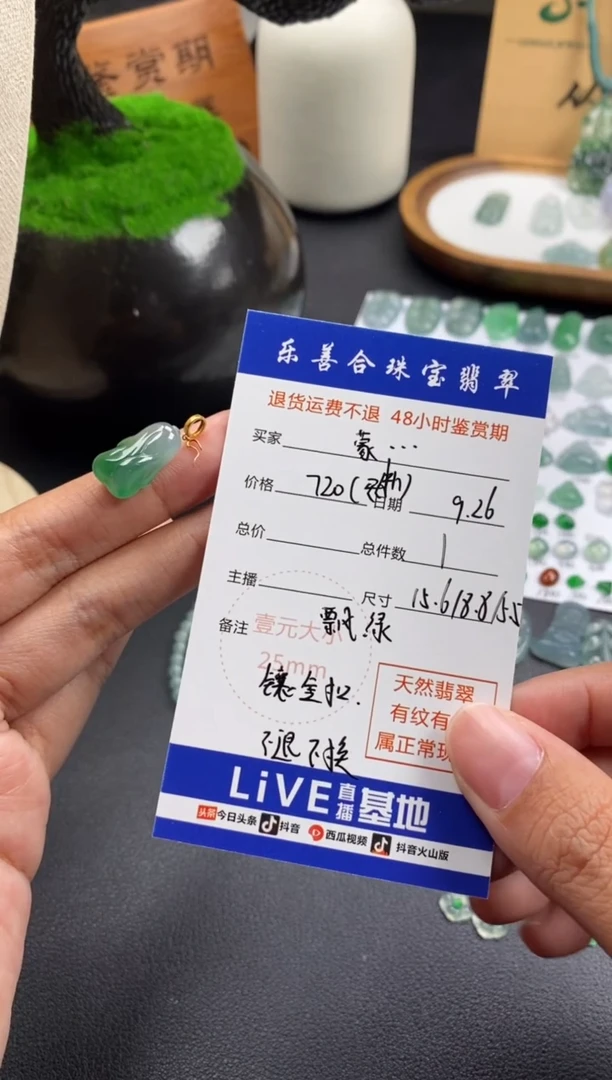 鉴赏期
乐善合珠宝翡翠
退货运费不退 48小时鉴赏期
买家 蒙...
价格 720( 日期 9.26
总价 总件数 1
主播 尺寸 15.6/8.8/5.5
备注 飘绿
壹元大小
25mm
镶金扣.
不退不换
天然翡翠
有纹有
属正常现
LiVE直播基地
头条 今日头条 抖音 西瓜视频 抖音火山版